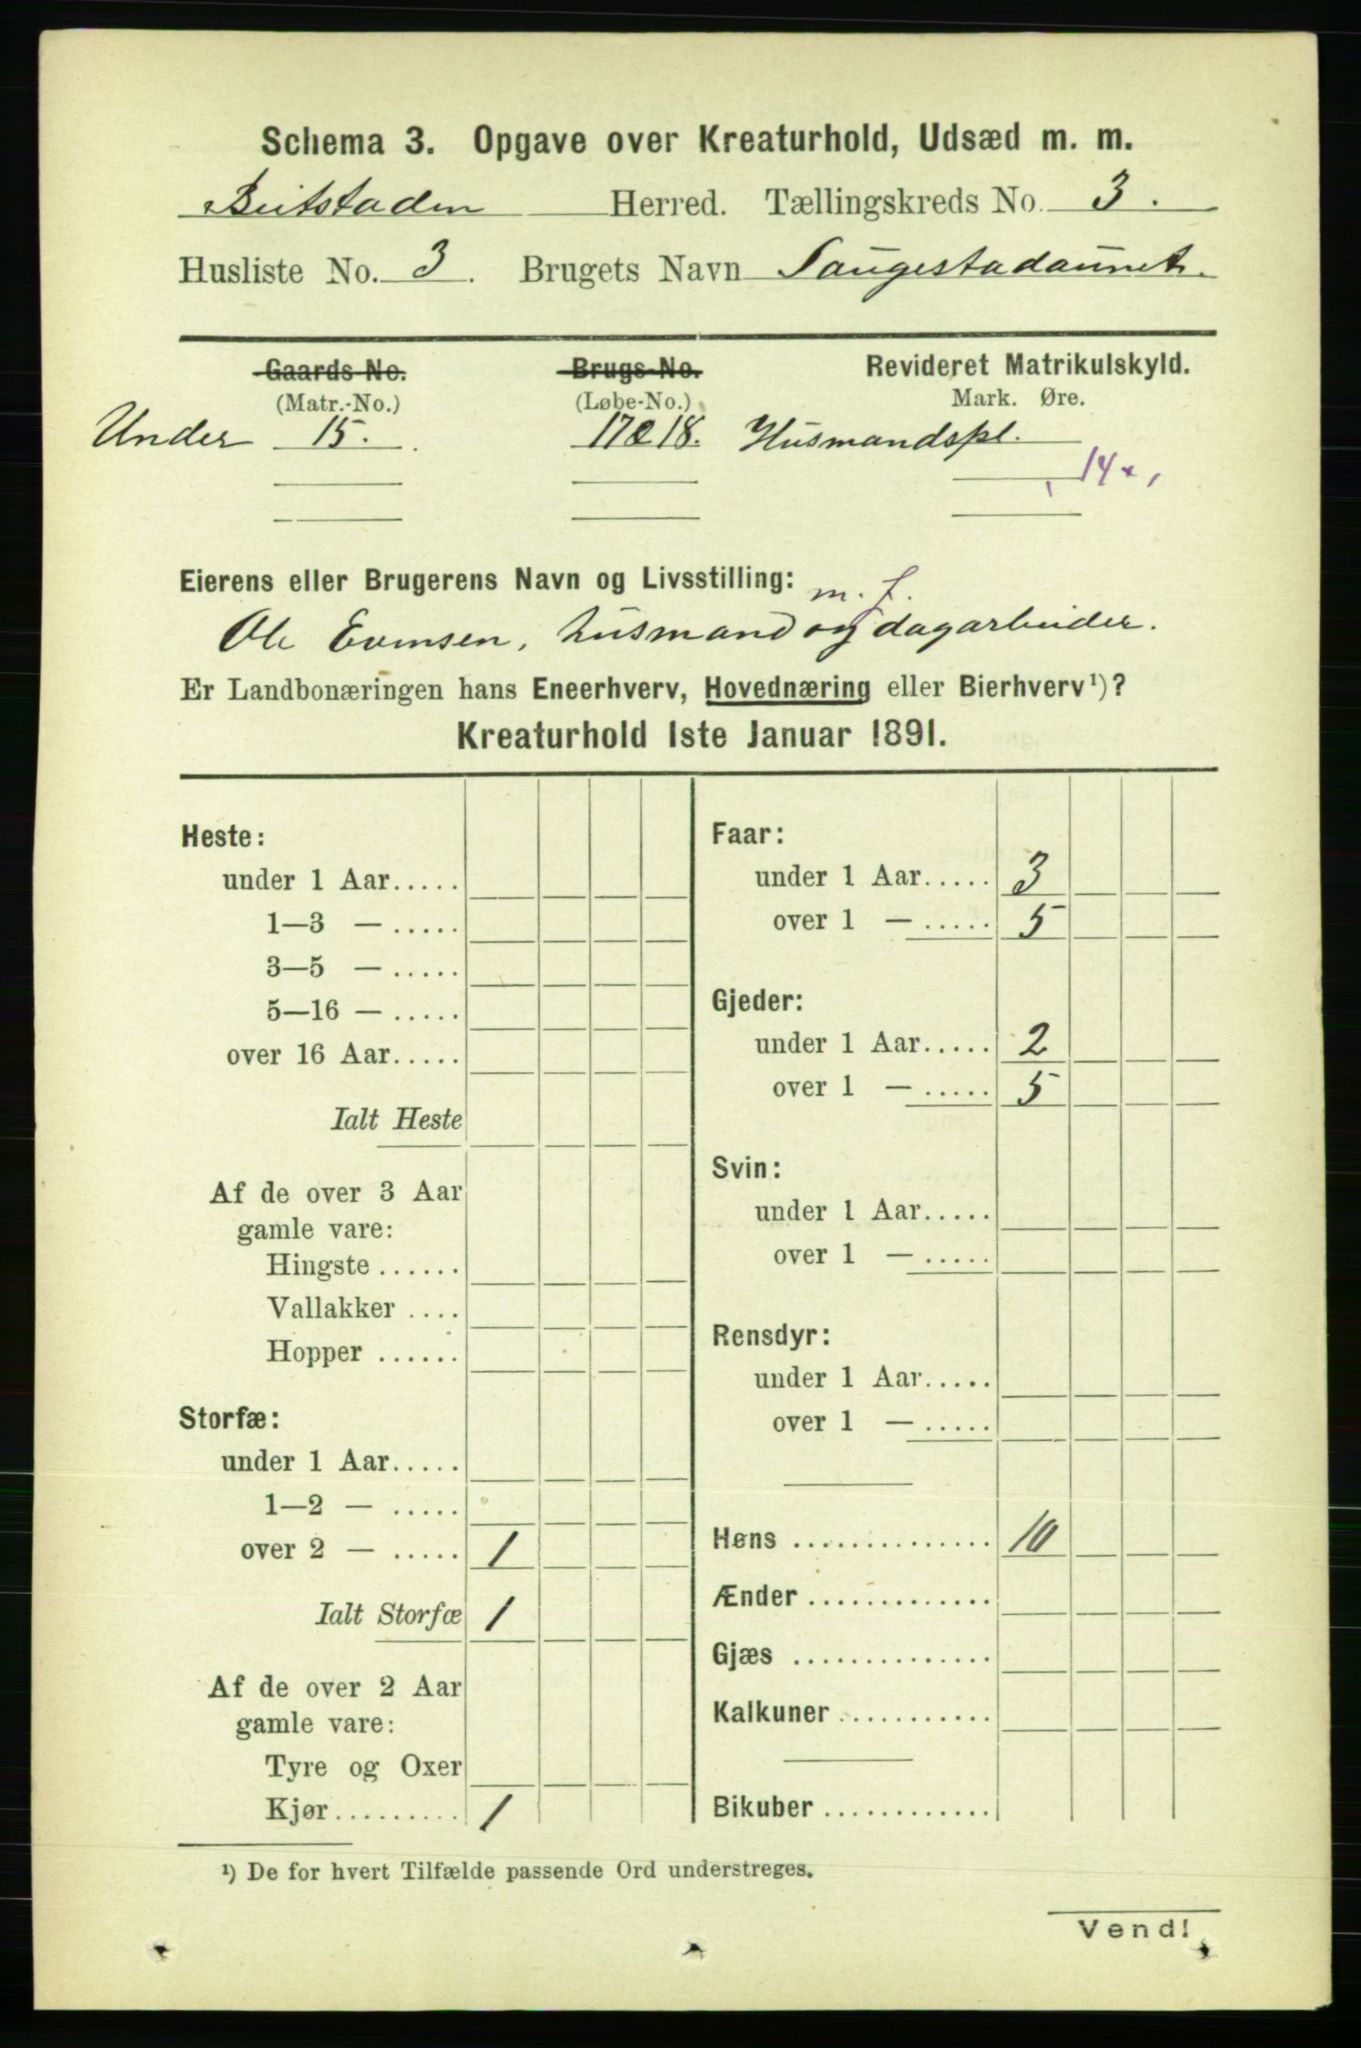 Schema 3. Opgave over Kreaturhold, Udsæd m. m.
Beitstaden Herred. Tællingskreds No. 3.
Husliste No. 3. Brugets Navn Saugestadaunet.
Gaards-No. Brugs-No. Revideret Matrikulskyld.
(Matr.-No.) (Løbe-No.) Mark. Øre.
Under 15. 17 & 18. Husmandspl.
14
Eierens eller Brugerens Navn og Livsstilling: m. f.
Ole Evensen, husmand og dagarbeider.
Er Landbonæringen hans Eneerhverv, Hovednæring eller Bierhverv¹)?
Kreaturhold 1ste Januar 1891.
Heste:
under 1 Aar.....
1—3 — .....
3—5 — .....
5—16 — .....
over 16 Aar.....
Ialt Heste
Af de over 3 Aar
gamle vare:
Hingste ......
Vallakker ....
Hopper ......
Storfæ:
under 1 Aar.....
1—2 — .....
over 2 — ..... 1
Ialt Storfæ 1
Af de over 2 Aar
gamle vare:
Tyre og Oxer
Kjør......... 1
Faar:
under 1 Aar..... 3
over 1 — ..... 5
Gjeder:
under 1 Aar..... 2
over 1 — ..... 5
Svin:
under 1 Aar.....
over 1 — .....
Rensdyr:
under 1 Aar.....
over 1 — .....
Høns .............. 10
Ænder .............
Gjæs ..............
Kalkuner ...........
Bikuber .............
¹) De for hvert Tilfælde passende Ord understreges.
Vend!